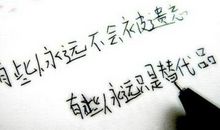 有些人永远不会衣皮遗忘
有些人永远只是替代品